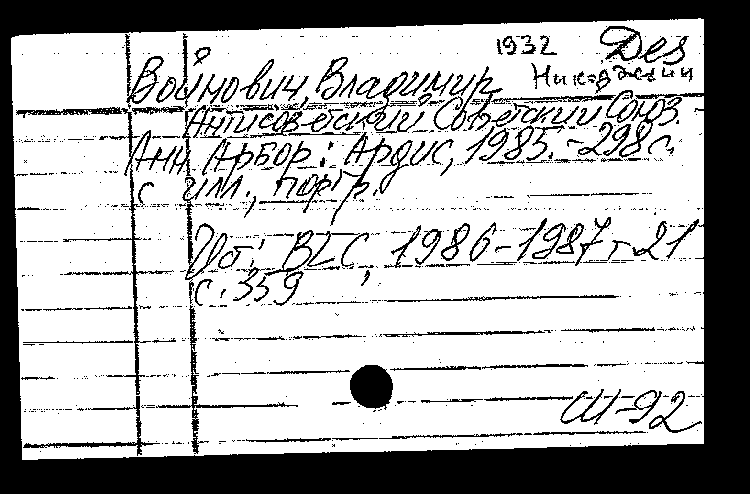 1932 Des
Войнович, Владимир Николаевич
Антисоветский Советский Союз. -
Анн Арбор: Ардис, 1985. - 298 с.
с илл., портр.
Ист: BLC, 1986-1987, т 21
с. 359
Ш-92